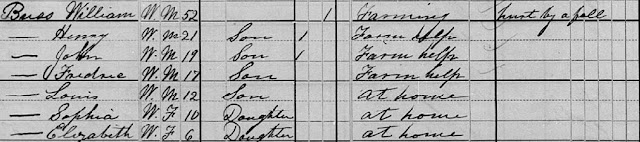 Buss William W. M 52 1 Farming hurt by a fall
— Henry W. M 21 Son 1 Farm help
— John W. M 19 Son 1 Farm help
— Fredric W. M 17 Son Farm help
— Louis W. M 12 Son at home
— Sophia W. F 10 Daughter at home
— Elizabeth W. F 6 Daughter at home